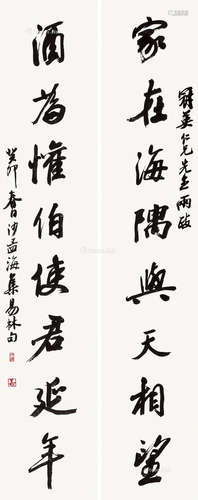 英仁兄先生兩政
家在海隅與天相望
酒為懽伯使君延年
癸卯春日沙孟海集易林句